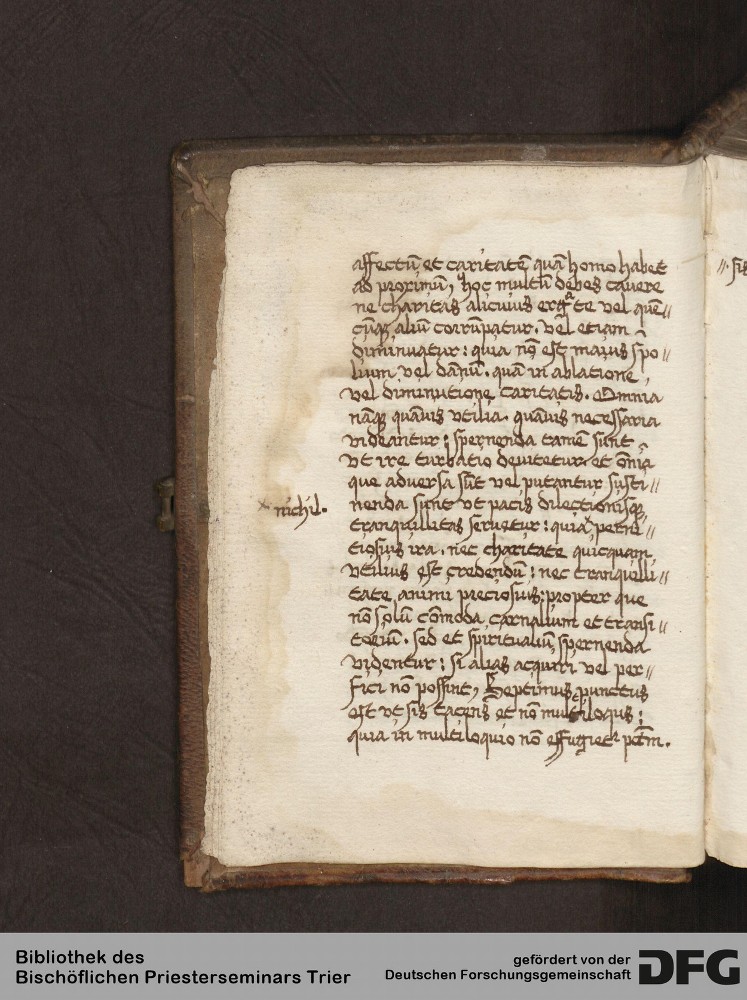 affectū et caritatē quā homo habet
ad proximū, hoc multū debes cauere
ne charitas alicuius erga te vel quē〃
cūqꝫ aliū corrūpatur. vel etiam
diminuatur: quia nō est maius spo〃
lium vel dānū. quā in ablatione,
vel diminutione caritatis. Omnia
nāqꝫ quāuis vtilia. quāuis necessaria
videantur: spernenda tamē sunt
vt ire turbatio deuitetur. et ōnia
que aduersa sūt vel putantur susti〃
nenda sunt vt pacis dilectionisqꝫ
× nichil.
tranquillitas seruetur: quia perni〃
tiosius ira. nec charitate quicquam
vtilius est credendū: nec tranquilli〃
tate animi preciosius: propter que
nō solū cōmoda carnalium et transi〃
toriū. sed et spiritualiū spernenda
videntur: si alias acquiri vel per〃
fici nō possint, Septimus punctus
est vt sis tacens et nō multiloqus:
quia in multiloquio nō effugietʳ pctm̄.
〃. sis
Bibliothek des
Bischöflichen Priesterseminars Trier
gefördert von der
Deutschen Forschungsgemeinschaft
DFG